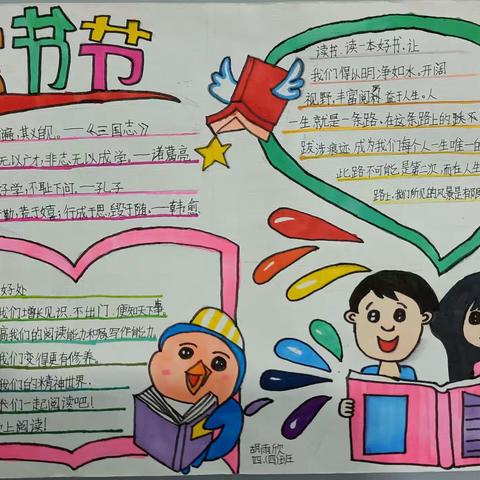 书节
遍,其义自见。——《三国志》
无以广才,非志无以成学。——诸葛亮
好学,不耻下问。——孔子
勤,荒于嬉;行成于思,毁于随。——韩愈
读书.读一本好书,让
我们得以明净如水,开阔
视野,丰富阅历,益于人生。人
一生就是一条路,在这条路上的
跋涉痕迹成为我们每个人一生唯一的
此路不可能是第二次,而在人生
路上,我们所见的风景是有限
好处
我们增长见识,不出门,便知天下事
高我们的阅读能力和写作能力.
我们变得更有修养.
我们的精神世界.
我们一起阅读吧!
上阅读!
胡雨欣
四.四班